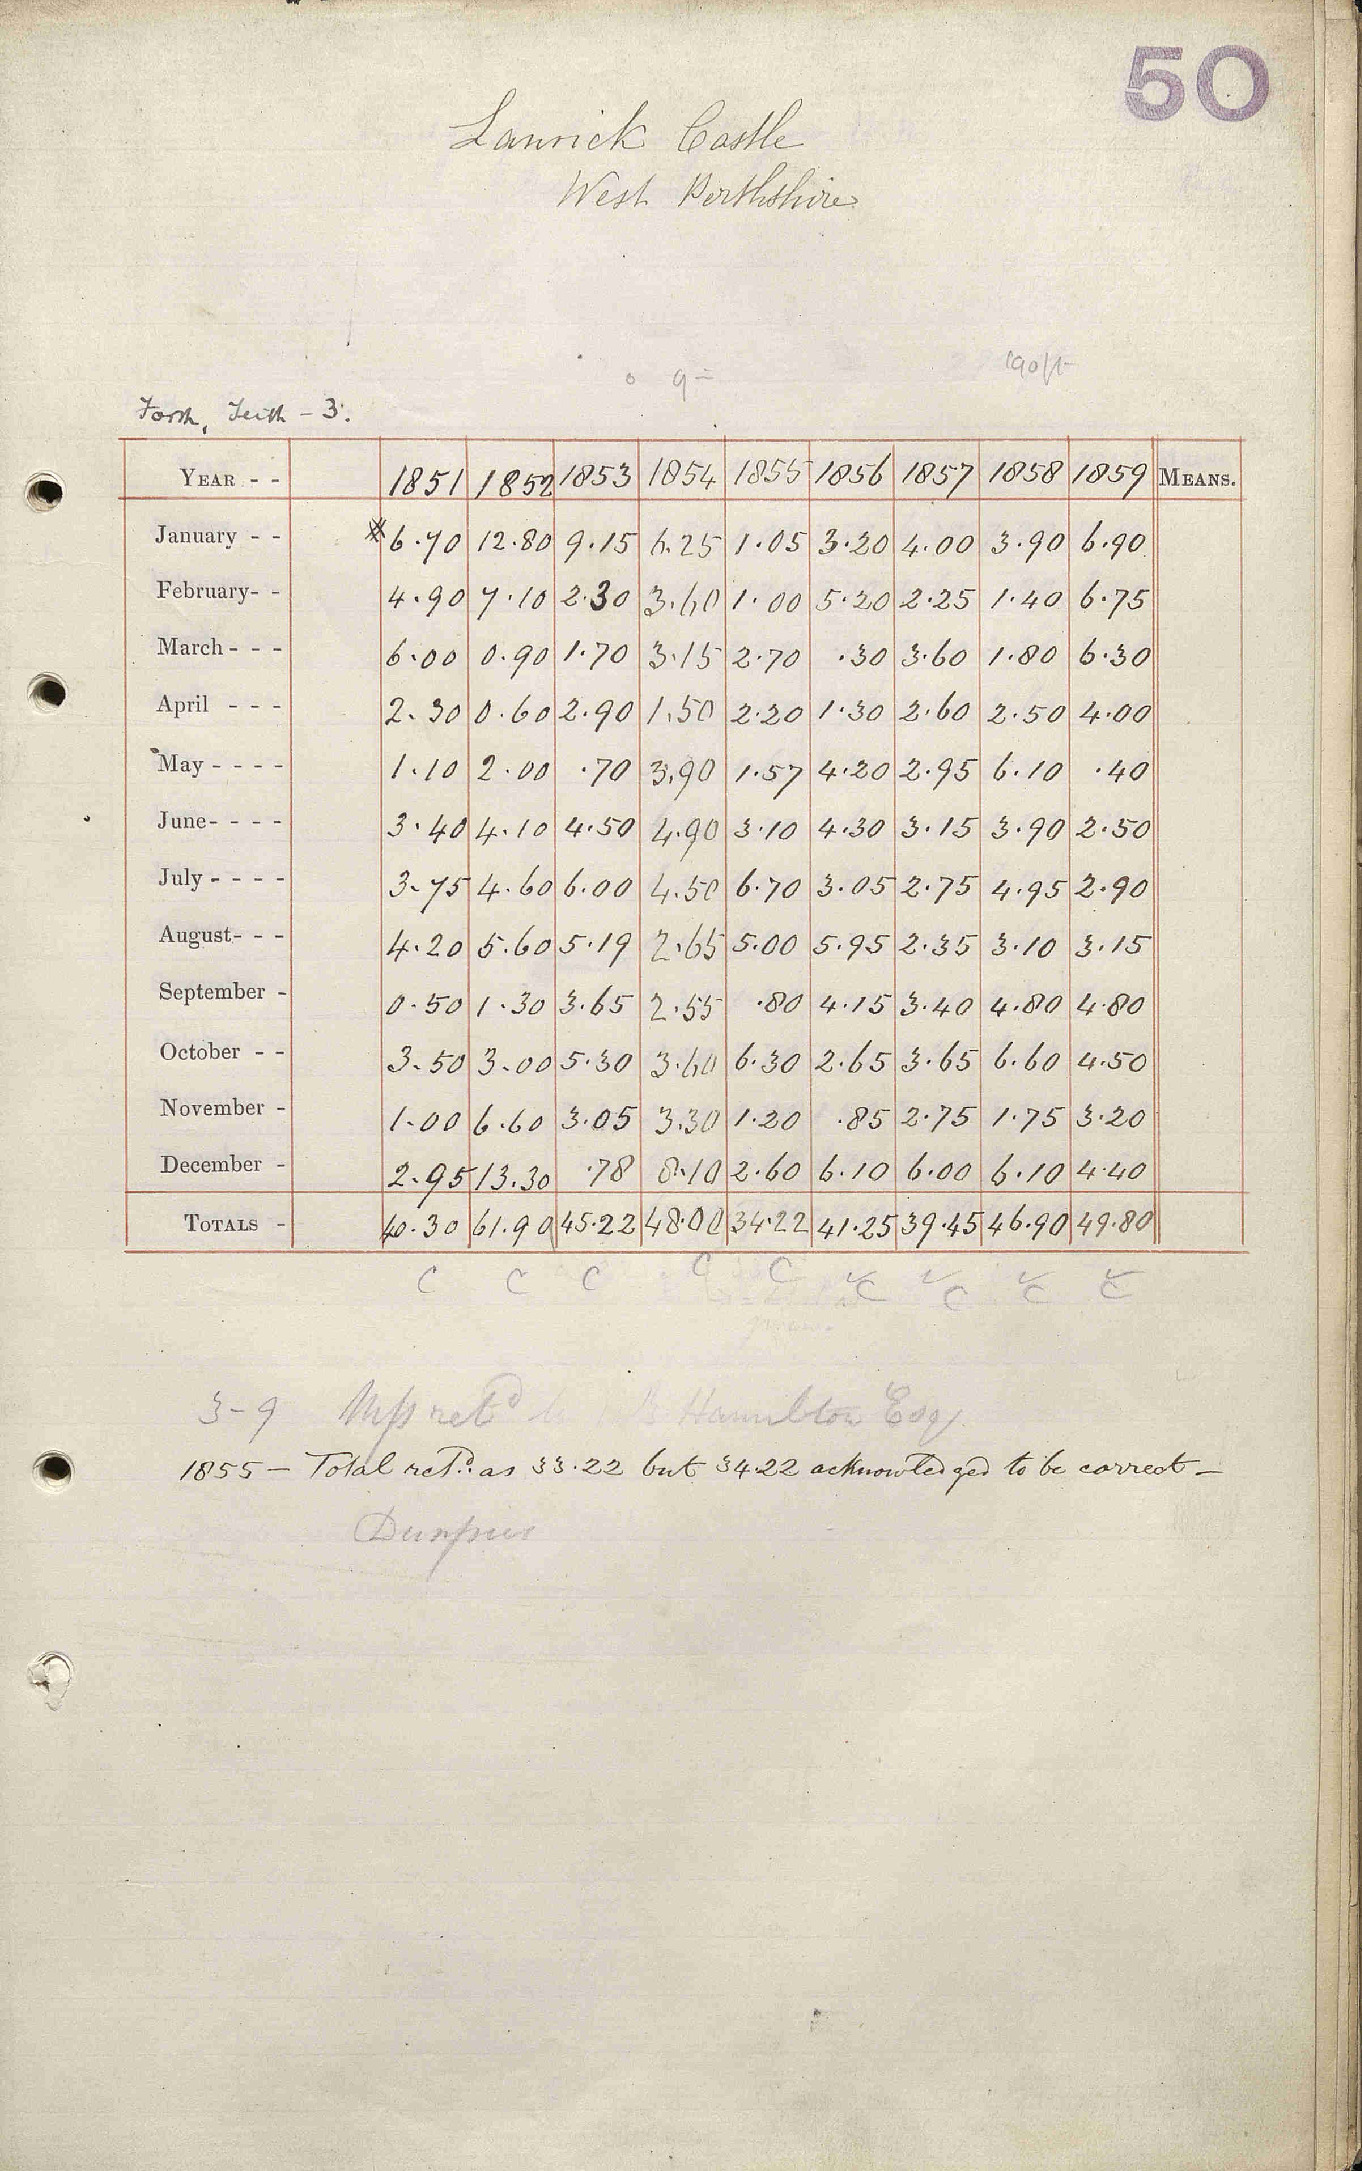 50
Lanrick Castle
West Perthshire
0 9=
190ft
Forth, Teith - 3.
YEAR - - 1851 1852 1853 1854 1855 1856 1857 1858 1859 MEANS.
January - - *6.70 12.80 9.15 6.25 1.05 3.20 4.00 3.90 6.90
February- - 4.90 7.10 2.30 3.60 1.00 5.20 2.25 1.40 6.75
March - - - 6.00 0.90 1.70 3.15 2.70 .30 3.60 1.80 6.30
April - - - 2.30 0.60 2.90 1.50 2.20 1.30 2.60 2.50 4.00
May - - - - 1.10 2.00 .70 3.90 1.57 4.20 2.95 6.10 .40
June- - - - 3.40 4.10 4.50 4.90 3.10 4.30 3.15 3.90 2.50
July - - - - 3.75 4.60 6.00 4.50 6.70 3.05 2.75 4.95 2.90
August- - - 4.20 5.60 5.19 2.65 5.00 5.95 2.35 3.10 3.15
September - 0.50 1.30 3.65 2.55 .80 4.15 3.40 4.80 4.80
October - - 3.50 3.00 5.30 3.60 6.30 2.65 3.65 6.60 4.50
November - 1.00 6.60 3.05 3.30 1.20 .85 2.75 1.75 3.20
December - 2.95 13.30 .78 8.10 2.60 6.10 6.00 6.10 4.40
TOTALS - 40.30 61.90 45.22 48.00 34.22 41.25 39.45 46.90 49.80
C C C C C C C C C
3-9 Mss retd Hamilton Esq.
1855 - Total retd. as 33.22 but 34.22 acknowledged to be correct -